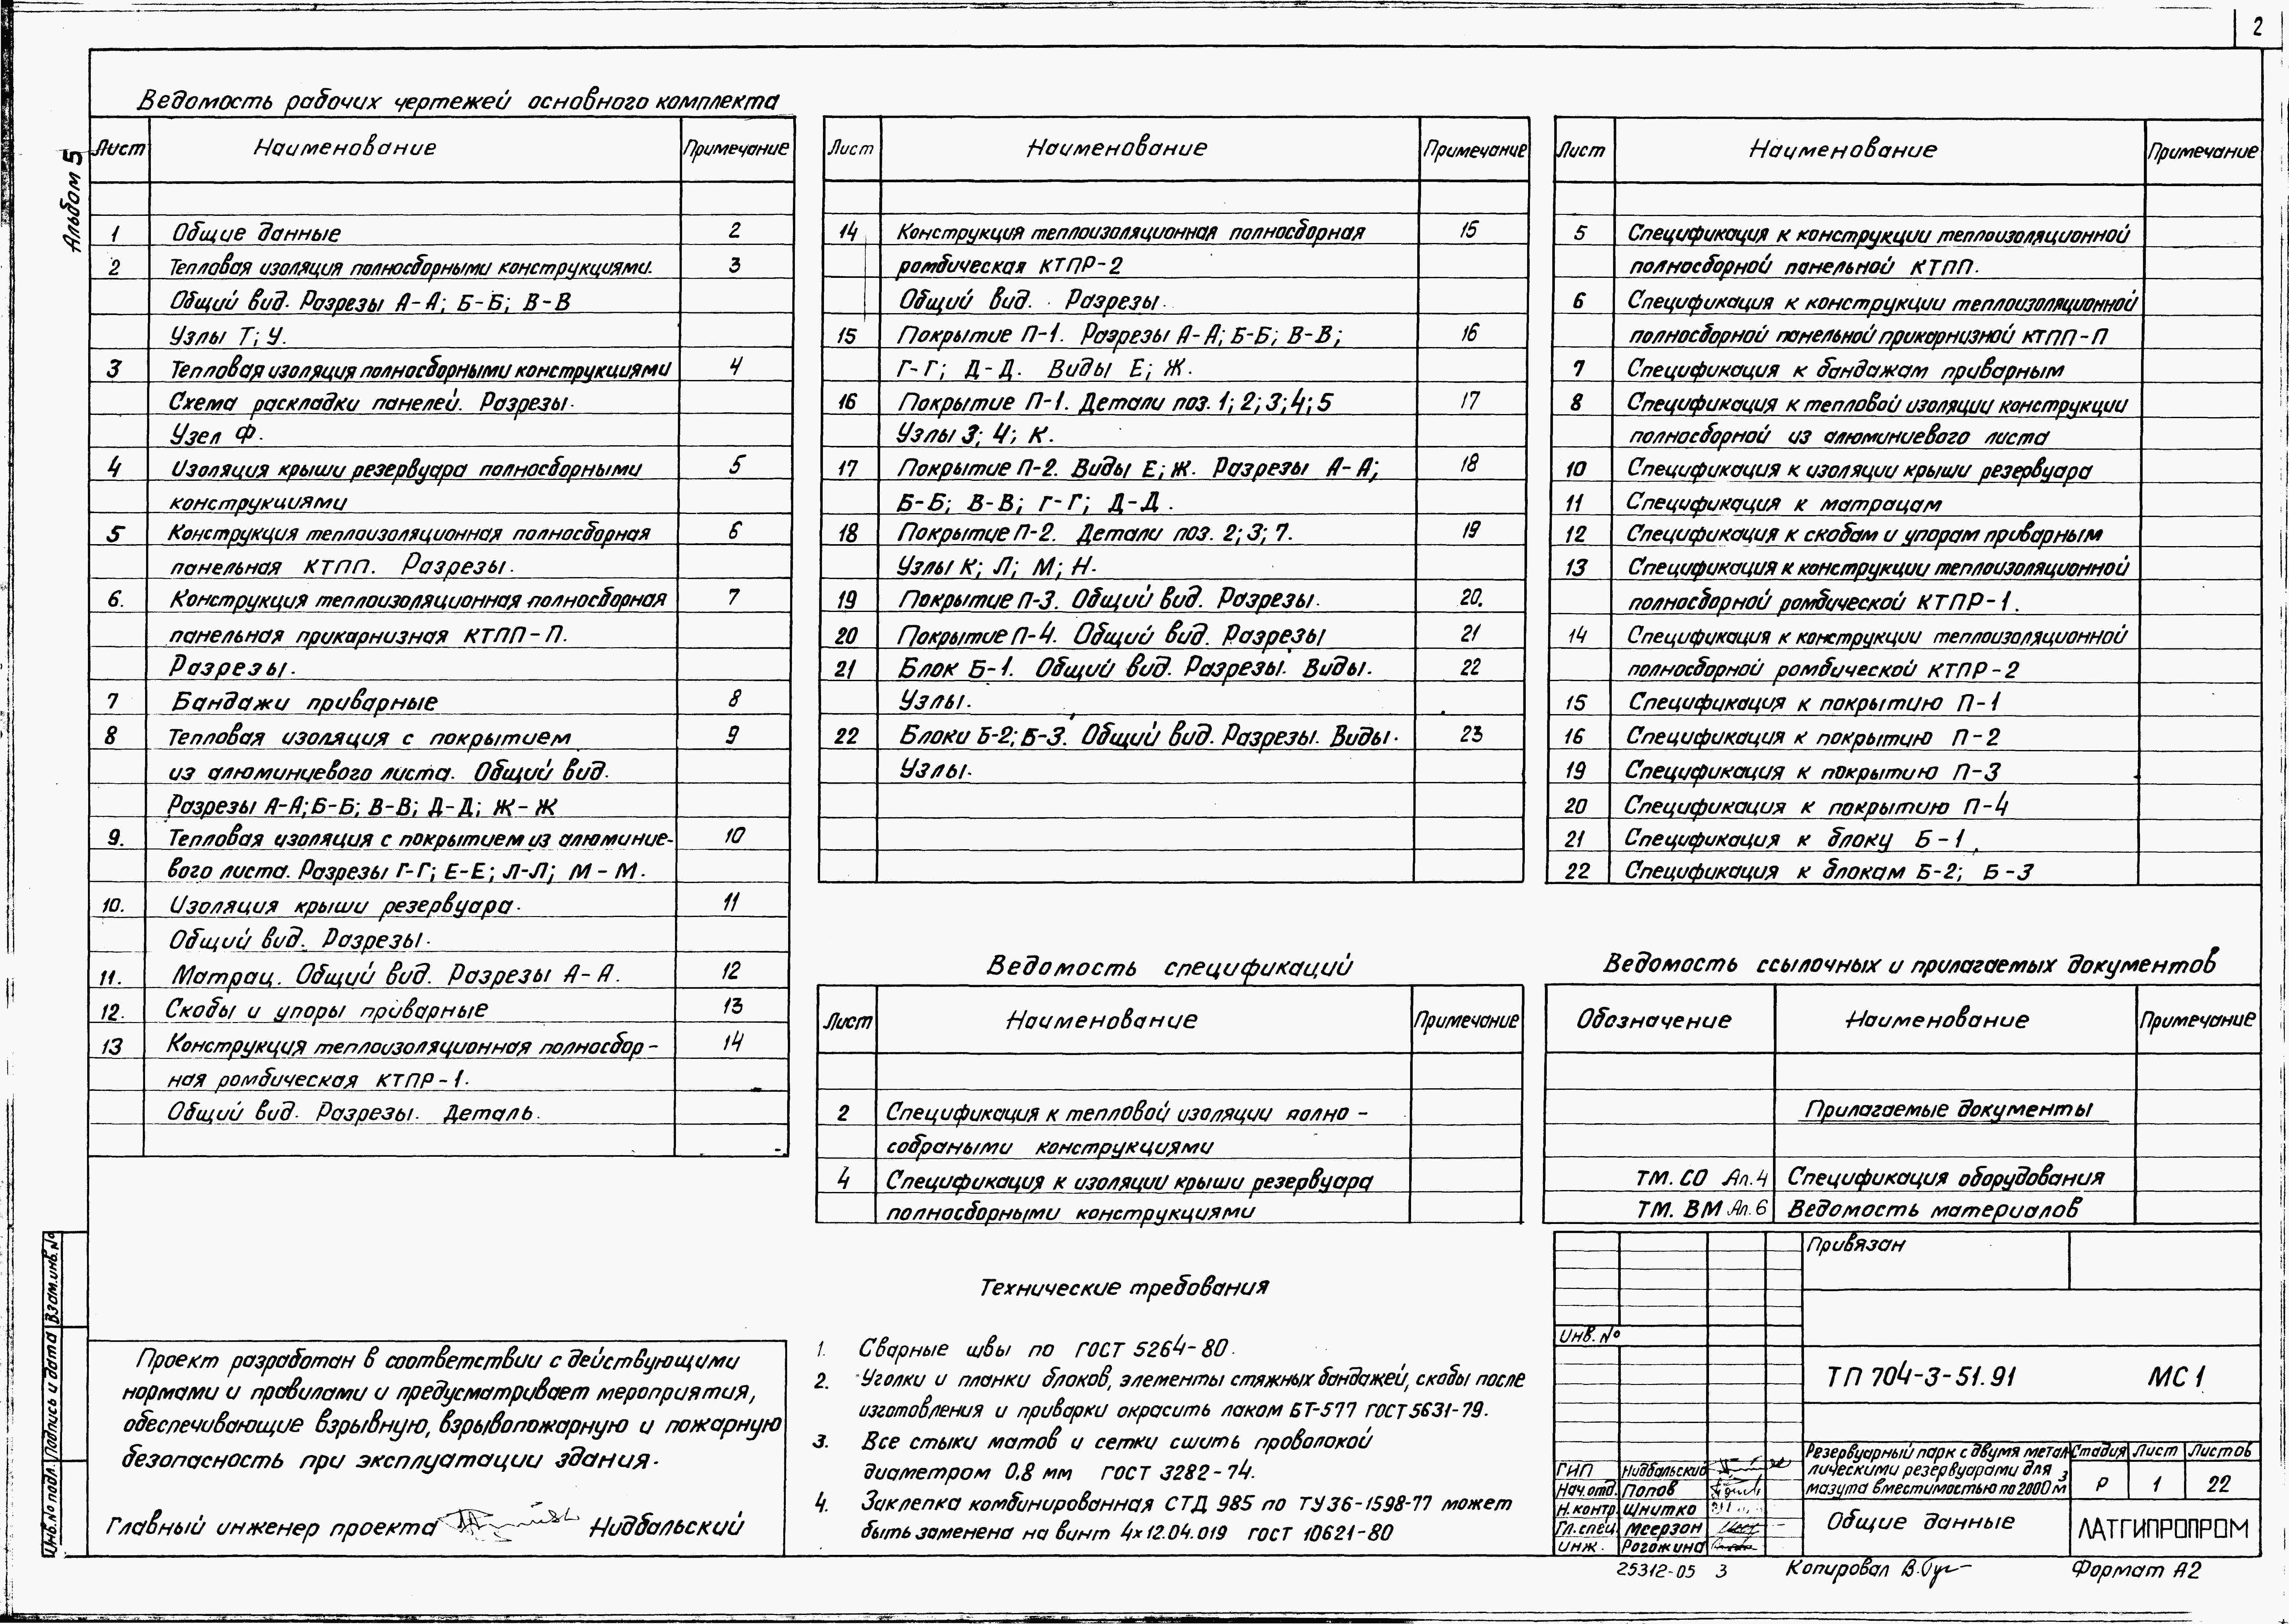 2
Альбом 5
Ведомость рабочих чертежей основного комплекта
Лист Наименование Примечание
1 Общие данные 2
2 Тепловая изоляция полносборными конструкциями. 3
Общий вид. Разрезы А-А; Б-Б; В-В
Узлы Т; У.
3 Тепловая изоляция полносборными конструкциями 4
Схема раскладки панелей. Разрезы.
Узел Ф.
4 Изоляция крыши резервуара полносборными 5
конструкциями
5 Конструкция теплоизоляционная полносборная 6
панельная КТПП. Разрезы.
6. Конструкция теплоизоляционная полносборная 7
панельная прикарнизная КТПП-П.
Разрезы.
7 Бандажи приварные 8
8 Тепловая изоляция с покрытием 9
из алюминиевого листа. Общий вид.
Разрезы А-А; Б-Б; В-В; Д-Д; Ж-Ж
9. Тепловая изоляция с покрытием из алюминие- 10
вого листа. Разрезы Г-Г; Е-Е; Л-Л; М-М.
10. Изоляция крыши резервуара. 11
Общий вид. Разрезы.
11. Матрац. Общий вид. Разрезы А-А. 12
12. Скобы и упоры приварные 13
13 Конструкция теплоизоляционная полносбор- 14
ная ромбическая КТПР-1.
Общий вид. Разрезы. Деталь.
Лист Наименование Примечание
14 Конструкция теплоизоляционная полносборная 15
ромбическая КТПР-2
Общий вид. Разрезы.
15 Покрытие П-1. Разрезы А-А; Б-Б; В-В; 16
Г-Г; Д-Д. Виды Е; Ж.
16 Покрытие П-1. Детали поз. 1; 2; 3; 4; 5 17
Узлы 3; 4; К.
17 Покрытие П-2. Виды Е; Ж. Разрезы А-А; 18
Б-Б; В-В; Г-Г; Д-Д.
18 Покрытие П-2. Детали поз. 2; 3; 7. 19
Узлы К; Л; М; Н.
19 Покрытие П-3. Общий вид. Разрезы. 20.
20 Покрытие П-4. Общий вид. Разрезы 21
21 Блок Б-1. Общий вид. Разрезы. Виды. 22
Узлы.
22 Блоки Б-2; Б-3. Общий вид. Разрезы. Виды. 23
Узлы.
Ведомость спецификаций
Лист Наименование Примечание
2 Спецификация к тепловой изоляции полно-
собраными конструкциями
4 Спецификация к изоляции крыши резервуара
полносборными конструкциями
Лист Наименование Примечание
5 Спецификация к конструкции теплоизоляционной
полносборной панельной КТПП.
6 Спецификация к конструкции теплоизоляционной
полносборной панельной прикарнизной КТПП-П
7 Спецификация к бандажам приварным
8 Спецификация к тепловой изоляции конструкции
полносборной из алюминиевого листа
10 Спецификация к изоляции крыши резервуара
11 Спецификация к матрацам
12 Спецификация к скобам и упорам приварным
13 Спецификация к конструкции теплоизоляционной
полносборной ромбической КТПР-1.
14 Спецификация к конструкции теплоизоляционной
полносборной ромбической КТПР-2
15 Спецификация к покрытию П-1
16 Спецификация к покрытию П-2
19 Спецификация к покрытию П-3
20 Спецификация к покрытию П-4
21 Спецификация к блоку Б-1
22 Спецификация к блокам Б-2; Б-3
Ведомость ссылочных и прилагаемых документов
Обозначение Наименование Примечание
Прилагаемые документы
ТМ. СО Ал.4 Спецификация оборудования
ТМ. ВМ Ал.6 Ведомость материалов
Проект разработан в соответствии с действующими
нормами и правилами и предусматривает мероприятия,
обеспечивающие взрывную, взрывопожарную и пожарную
безопасность при эксплуатации здания.
Главный инженер проекта Нидбальский
Технические требования
1. Сварные швы по ГОСТ 5264-80.
2. Уголки и планки блоков, элементы стяжных бандажей, скобы после
изготовления и приварки окрасить лаком БТ-577 ГОСТ 5631-79.
3. Все стыки матов и сетки сшить проволокой
диаметром 0,8 мм ГОСТ 3282-74.
4. Заклепка комбинированная СТД 985 по ТУ36-1598-77 может
быть заменена на винт 4х12.04.019 ГОСТ 10621-80
Инв. № подл. Подпись и дата Взам. инв. №
Привязан
Инв. №
ТП 704-3-51.91 МС1
Резервуарный парк с двумя метал-
лическими резервуарами для
мазута вместимостью по 2000м³
Стадия Лист Листов
Р 1 22
ГИП Нидбальский
Нач.отд. Попов
Н.контр. Шнитко
Гл.спец. Меерзон
инж. Рогожина
Общие данные
ЛАТГИПРОПРОМ
25312-05 3
Копировал
Формат А2